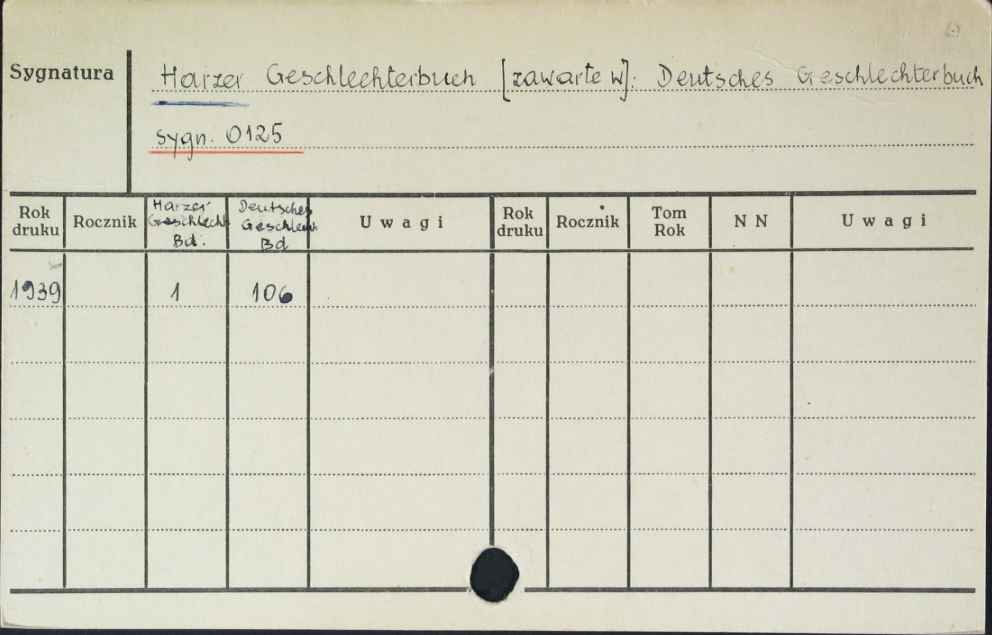 Sygnatura
Harzer Geschlechterbuch [zawarte w]: Deutsches Geschlechterbuch
sygn. 0125
Rok druku Rocznik Harzer Geschlecht Bd. Deutsches Geschlech Bd Uwagi Rok druku Rocznik Tom Rok NN Uwagi
1939 1 106